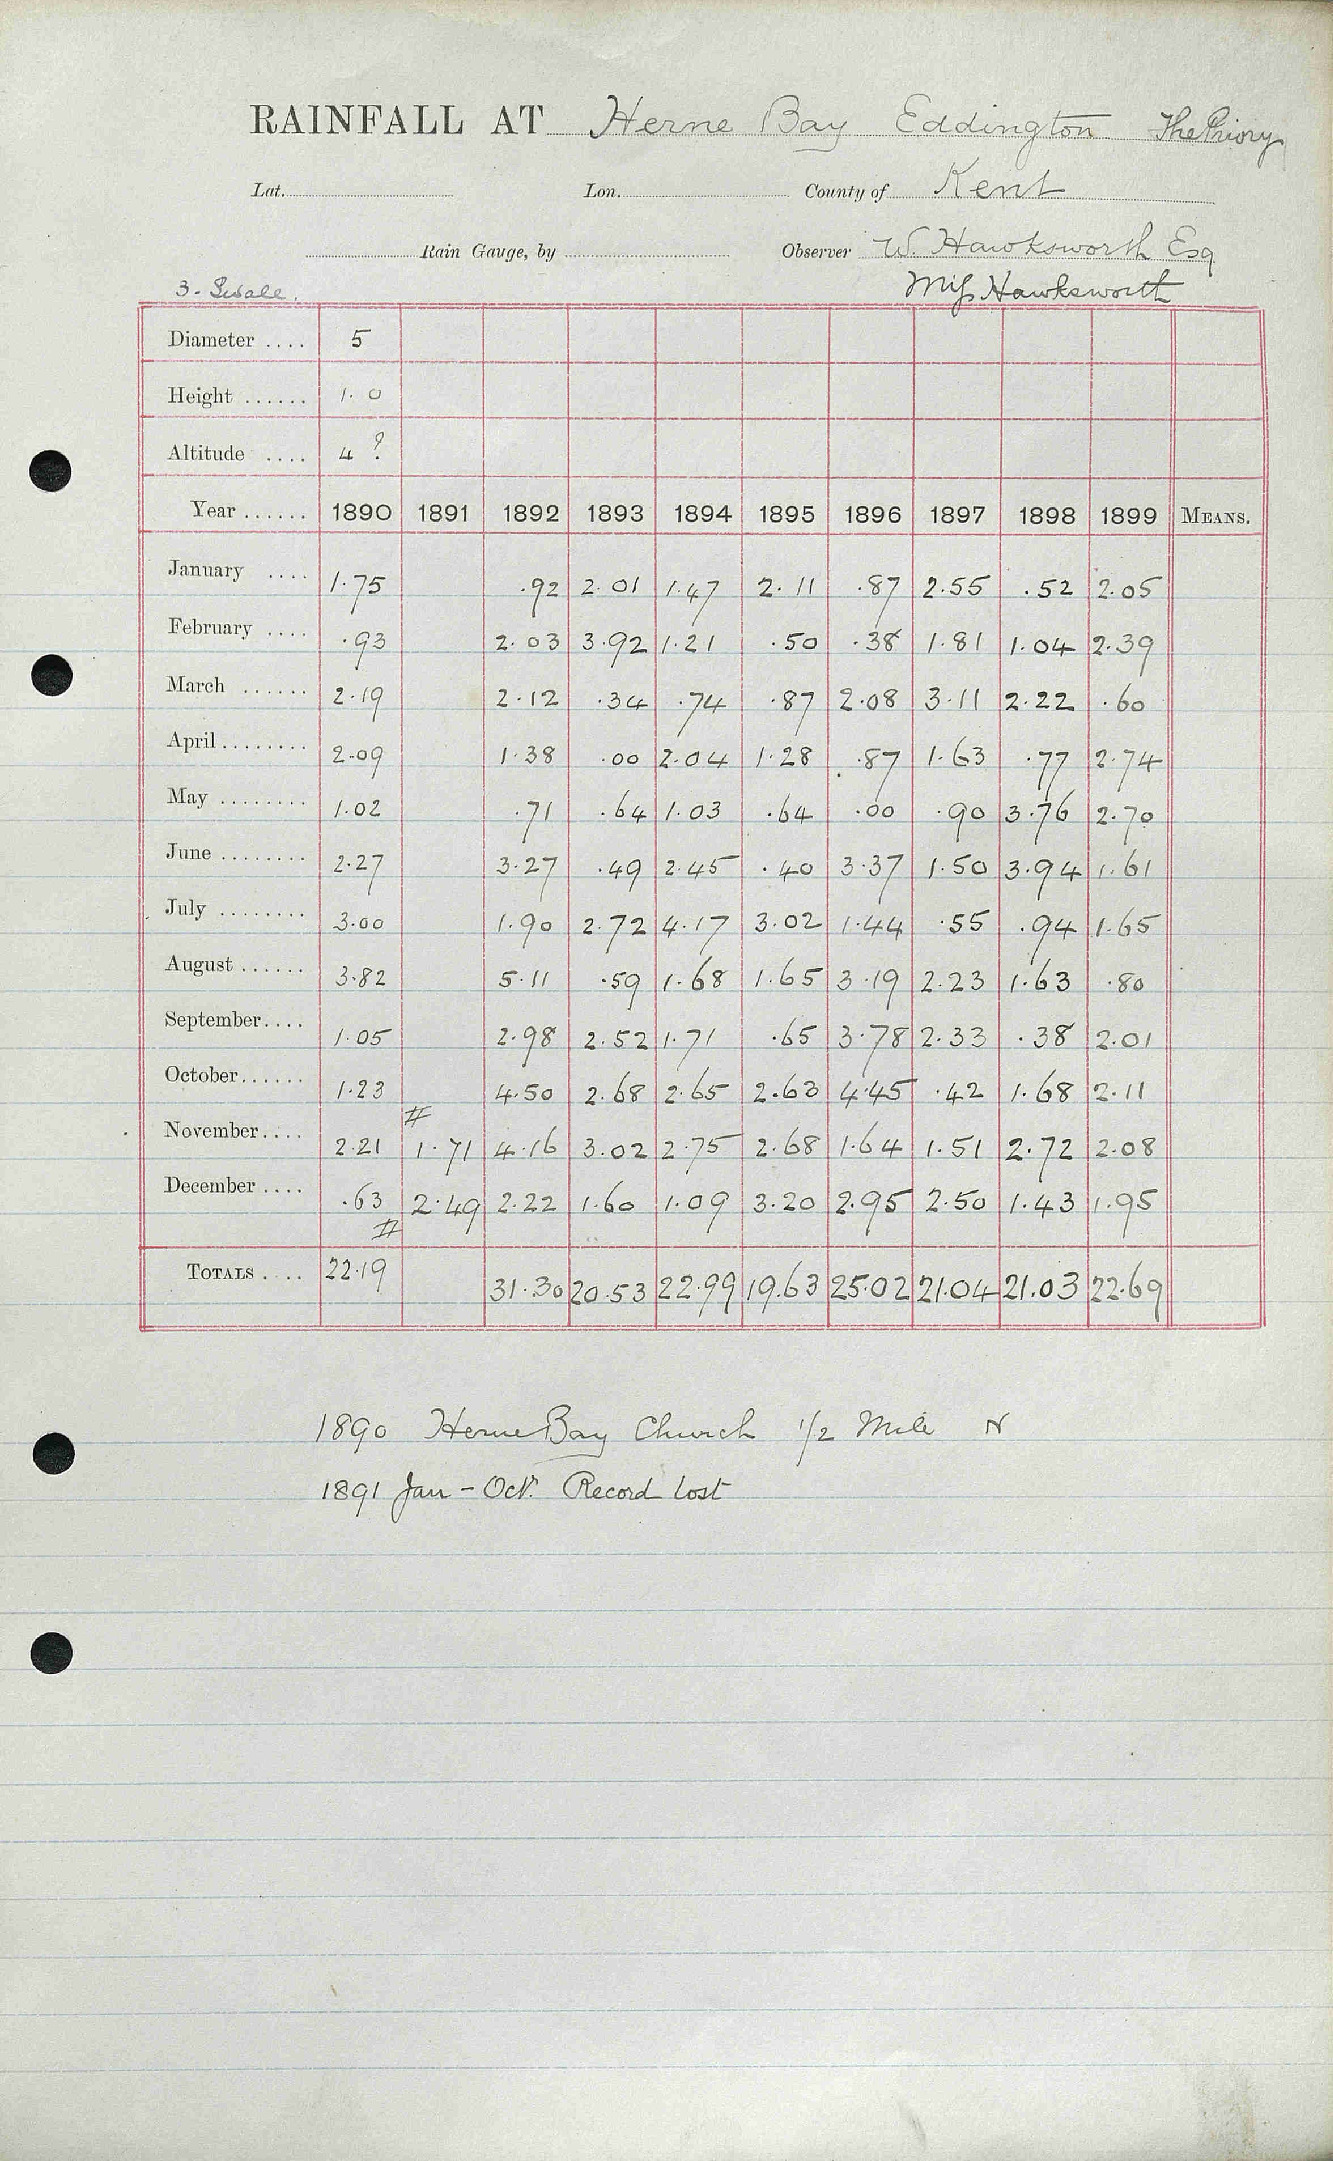 RAINFALL AT Herne Bay Eddington The Priory
Lat. Lon. County of Kent
Rain Gauge, by Observer W. Hawksworth Esq
Miss Hawksworth
3 - Swale.
Diameter .... 5
Height ...... 1. 0
Altitude .... 4 ?
Year ...... 1890 1891 1892 1893 1894 1895 1896 1897 1898 1899 MEANS.
January .... 1.75 .92 2.01 1.47 2.11 .87 2.55 .52 2.05
February .... .93 2.03 3.92 1.21 .50 .38 1.81 1.04 2.39
March ...... 2.19 2.12 .34 .74 .87 2.08 3.11 2.22 .60
April ........ 2.09 1.38 .00 2.04 1.28 .87 1.63 .77 2.74
May ........ 1.02 .71 .64 1.03 .64 .00 .90 3.76 2.70
June ........ 2.27 3.27 .49 2.45 .40 3.37 1.50 3.94 1.61
July ........ 3.00 1.90 2.72 4.17 3.02 1.44 .55 .94 1.65
August ...... 3.82 5.11 .59 1.68 1.65 3.19 2.23 1.63 .80
September.... 1.05 2.98 2.52 1.71 .65 3.78 2.33 .38 2.01
October...... 1.23 4.50 2.68 2.65 2.63 4.45 .42 1.68 2.11
November.... 2.21 # 1.71 4.16 3.02 2.75 2.68 1.64 1.51 2.72 2.08
December .... .63 2.49 2.22 1.60 1.09 3.20 2.95 2.50 1.43 1.95
#
TOTALS .... 22.19 31.30 20.53 22.99 19.63 25.02 21.04 21.03 22.69
1890 Herne Bay Church 1/2 Mile N
1891 Jan - Oct. Record lost